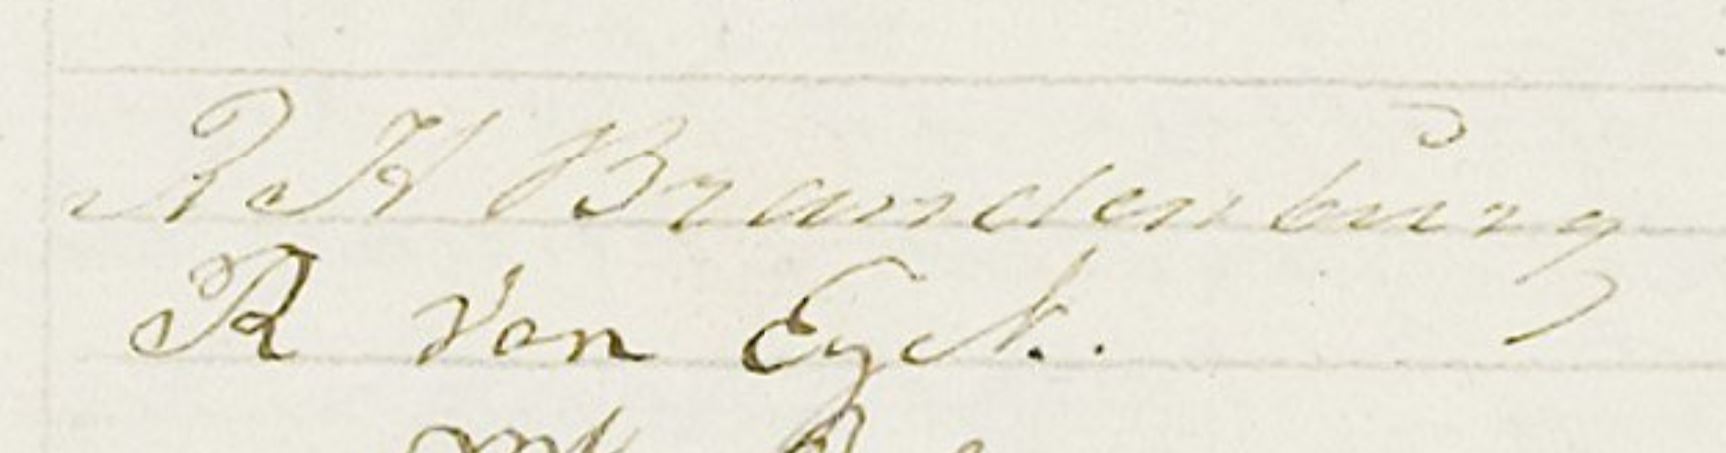 R H Brandenburg
R Van Eyck.